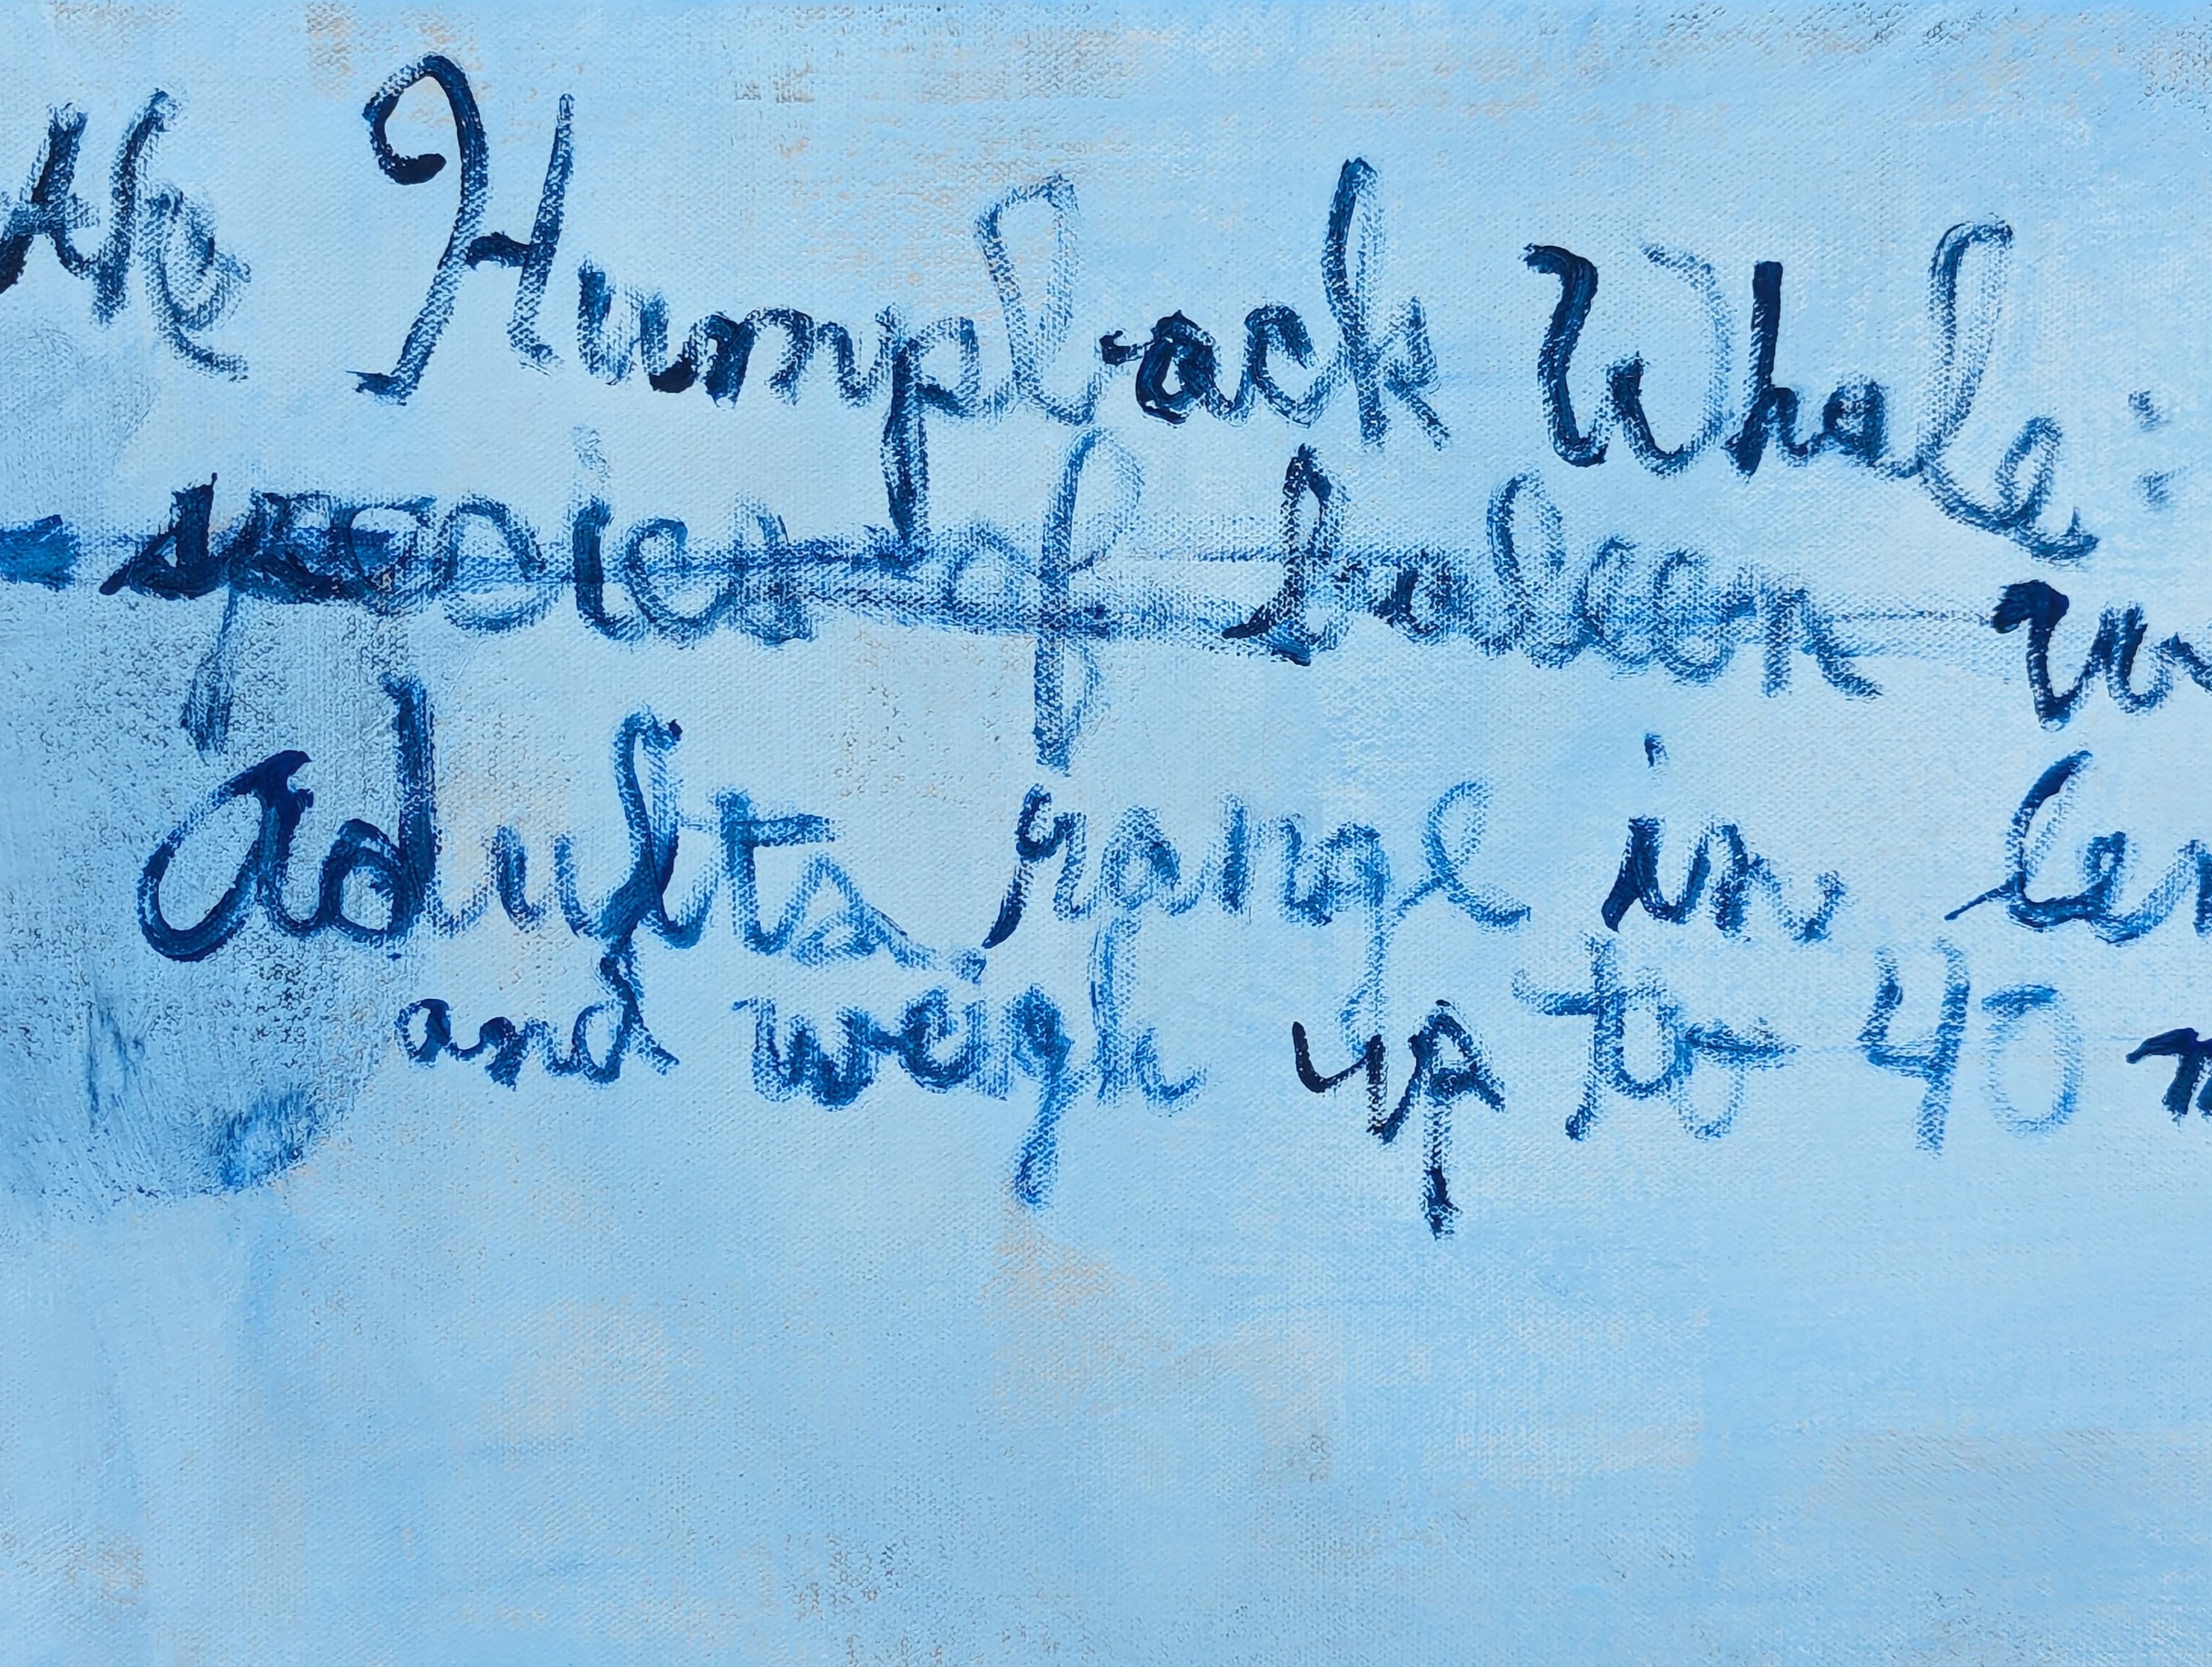 the Humpback Whale:
species of baleen
Adults range in len
and weigh up to 40 m